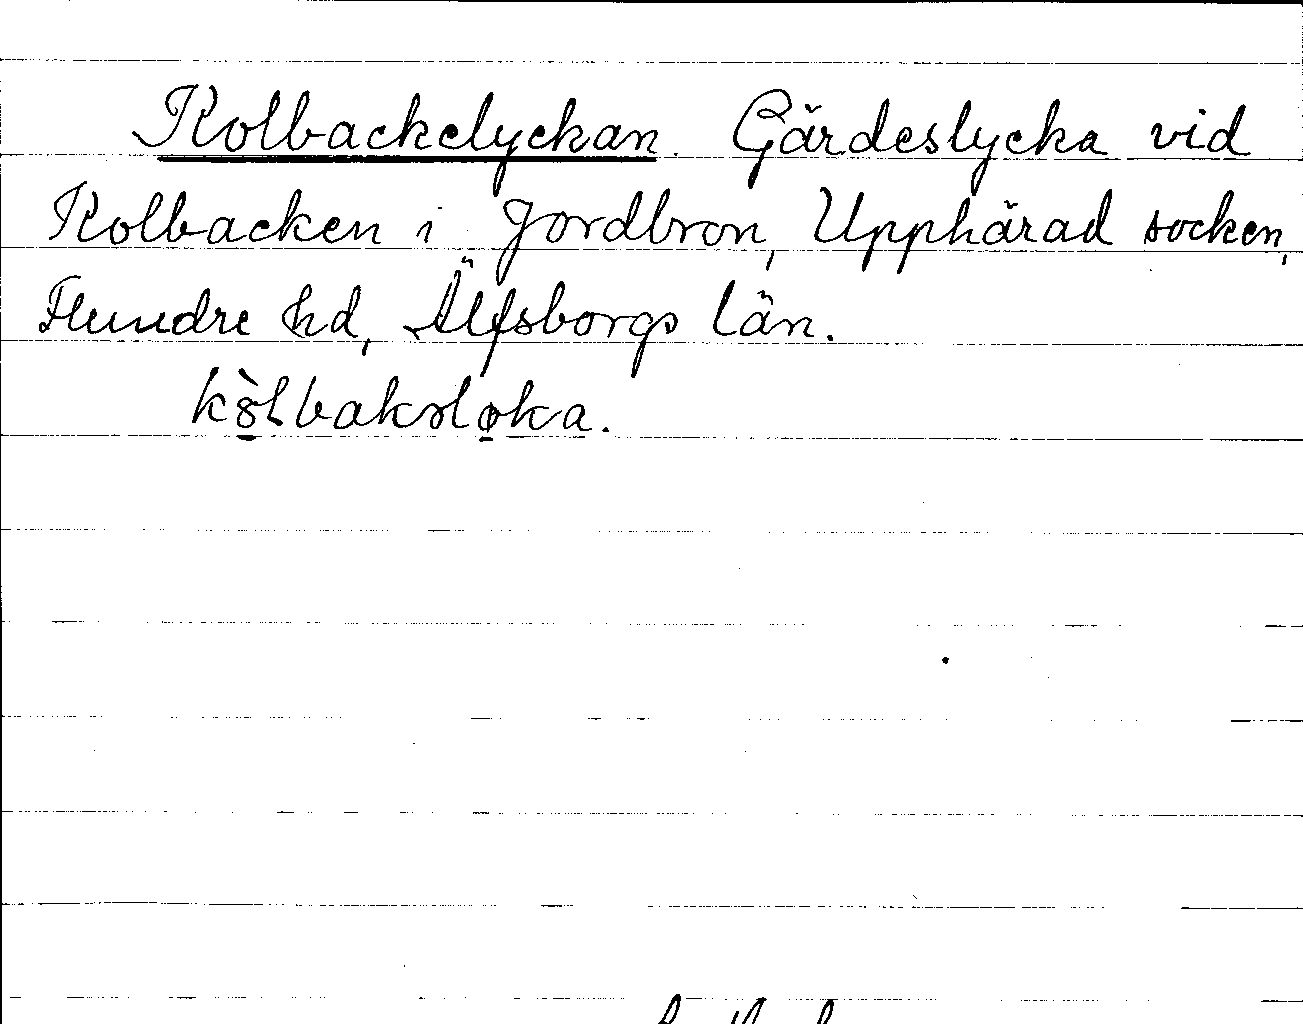 Kolbackelyckan. Gärdeslycka vid
Kolbacken i Jordbron, Upphärad socken,
Flundre hd, Älfsborgs län.